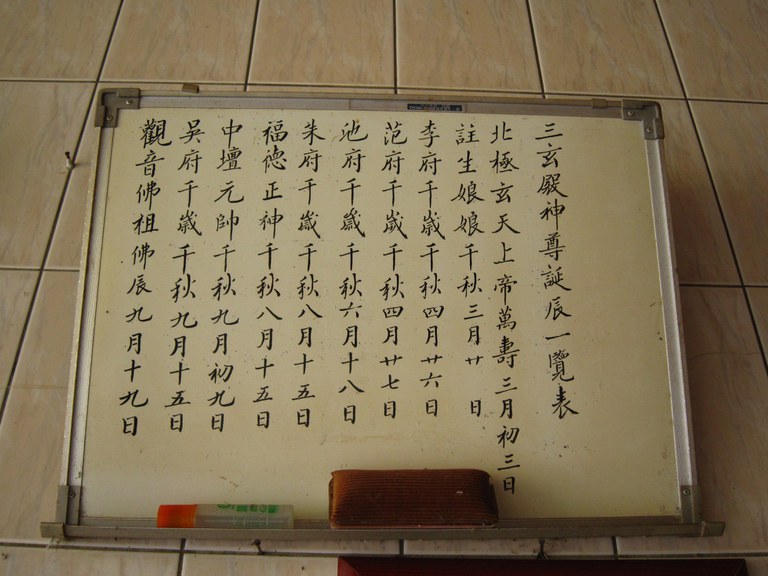 三玄殿神尊誕辰一覽表
北極玄天上帝萬壽三月初三日
註生娘娘千秋三月廿日
李府千歲千秋四月廿六日
范府千歲千秋四月廿七日
池府千歲千秋六月十八日
朱府千歲千秋八月十五日
福德正神千秋八月十五日
中壇元帥千秋九月初九日
吳府千歲千秋九月十五日
觀音佛祖佛辰九月十九日